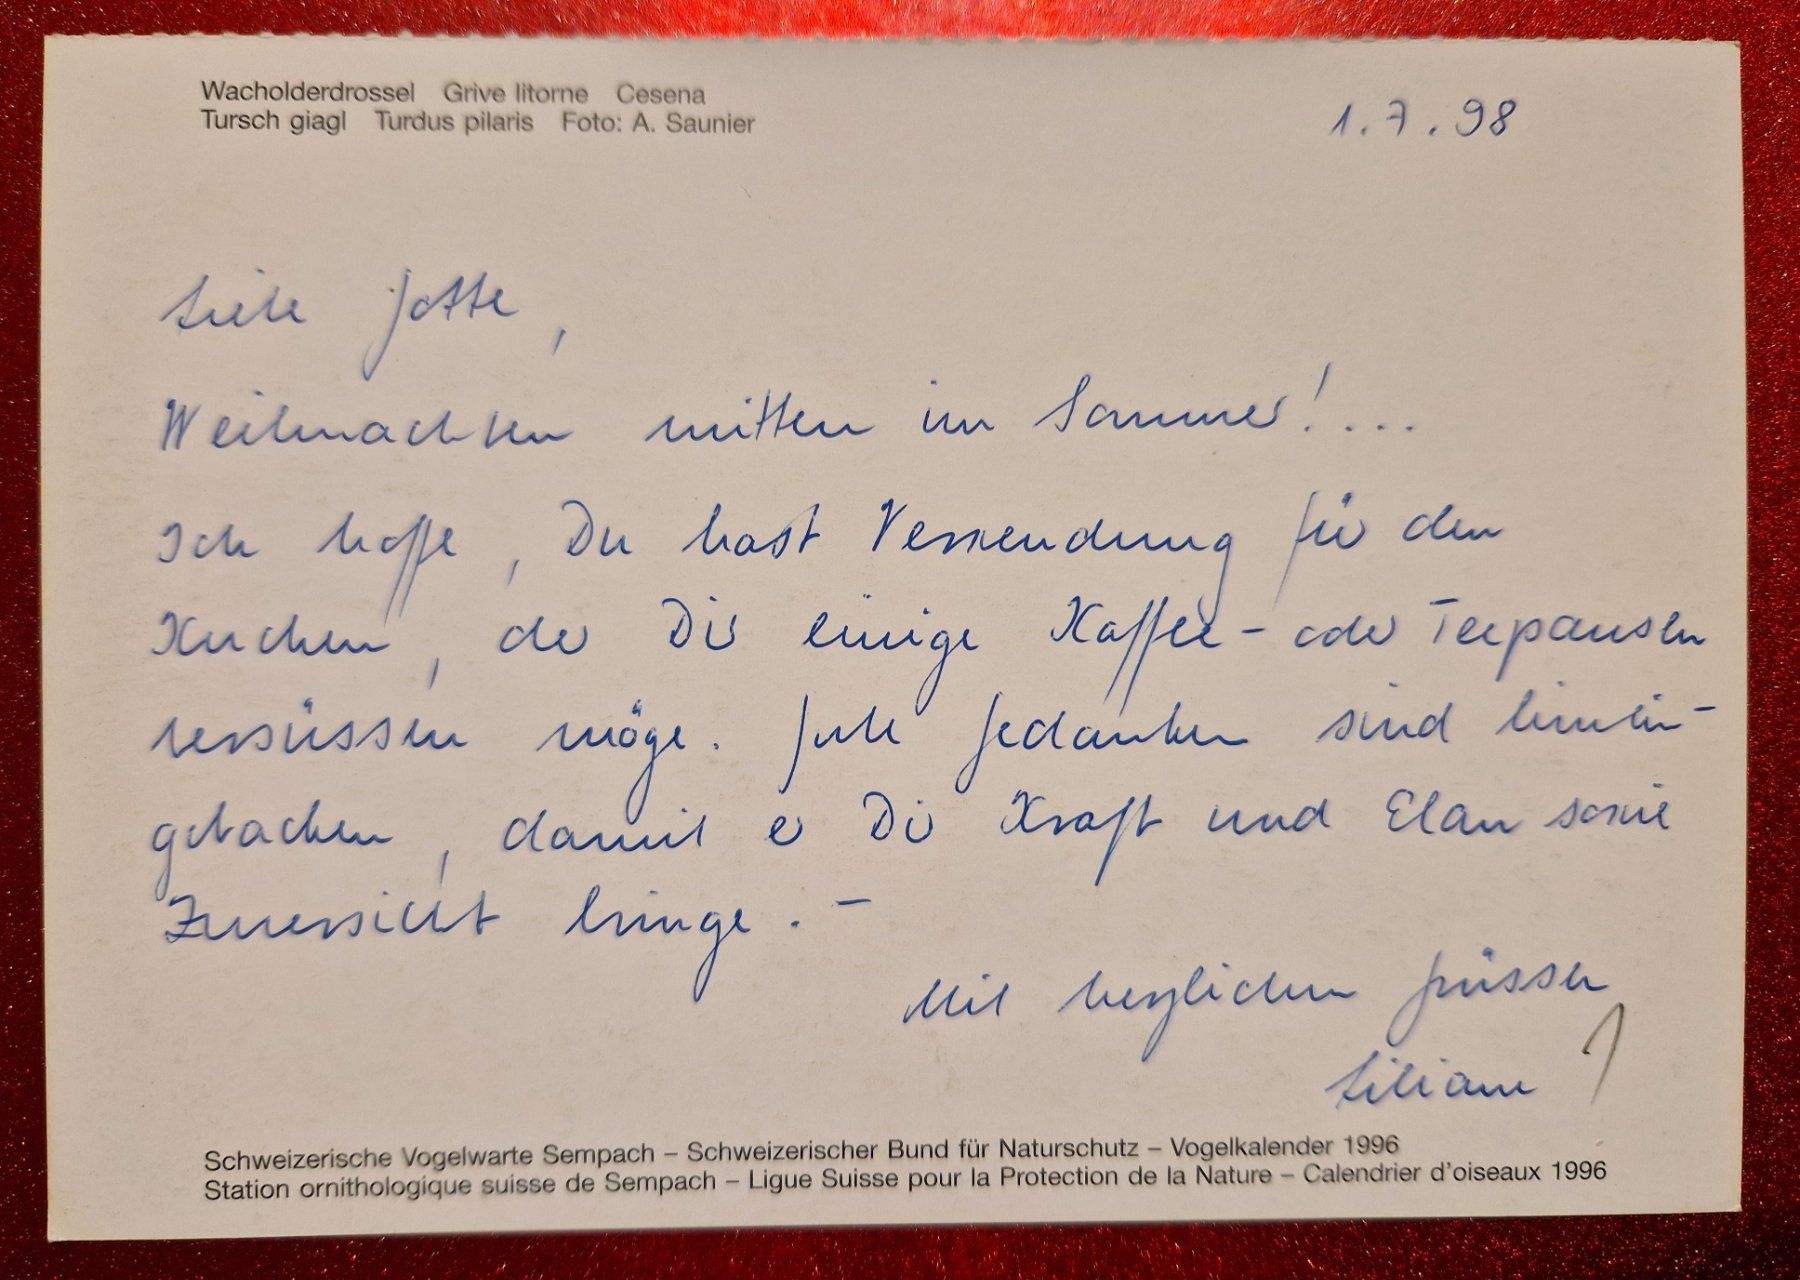 Wacholderdrossel Grive litorne Cesena
Tursch giagl Turdus pilaris Foto: A. Saunier
1.7.98
Liebe Jotte,
Weihnachten mitten im Sommer!...
Ich hoffe, Du hast Verwendung für den
Kuchen, der Dir einige Kaffee- oder Teepausen
versüssen möge. Gute Gedanken sind hinein-
gebacken, damit er Dir Kraft und Elan sowie
Zuversicht bringe.–
Mit herzlichen Grüssen
Liliane
Schweizerische Vogelwarte Sempach – Schweizerischer Bund für Naturschutz – Vogelkalender 1996
Station ornithologique suisse de Sempach – Ligue Suisse pour la Protection de la Nature – Calendrier d'oiseaux 1996